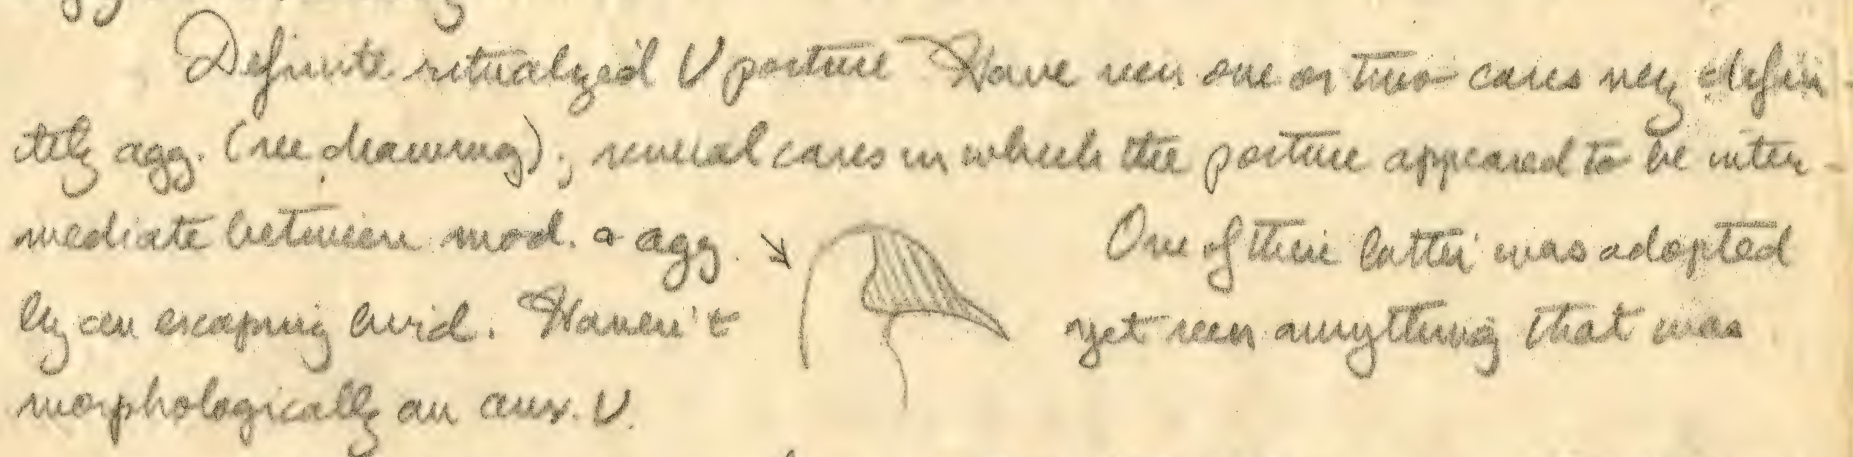 Definite ritualized U posture Have seen one or two cases very defin-
itely agg. (see drawing); several cases in which the posture appeared to be inter-
mediate between mod. & agg. One of these latter was adopted
by an escaping bird. Haven't yet seen anything that was
morphologically an anx. U.